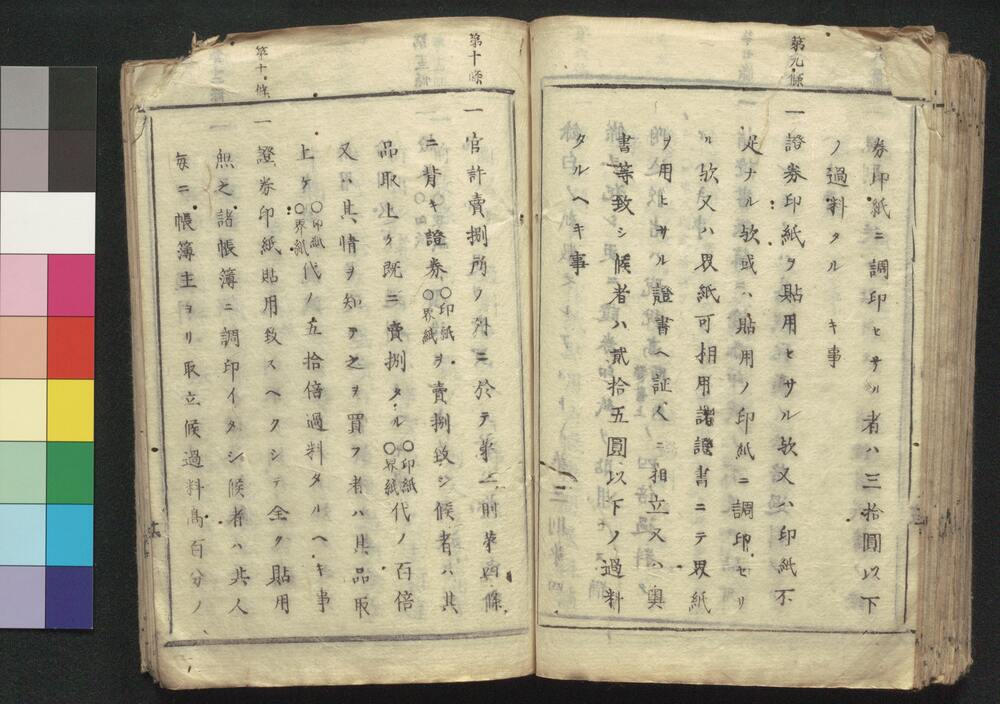 券印紙ニ調印ヒサル者ハ三拾圓以下
ノ過料タル キ事
第九條
一證券印紙ヲ貼用ヒサル欤又ハ印紙不
足ナル欤或ハ貼用ノ印紙ニ調印セサ
ル欤又ハ界紙可相用諸證書ニテ界紙
ヲ用ヒサル證書ヘ証人ニ相立又ハ奥
書等致シ候者ハ貳拾五圓以下ノ過料
タルヘキ事
第十條
一官許賣捌所ノ外ニ於テ第二則第四條
ニ背キ證券○印紙○界紙ヲ賣捌致シ候者ハ其
品取上ケ既ニ賣捌タル○印紙○界紙代ノ百倍
又ハ其情ヲ知テ之ヲ買フ者ハ其品取
上ケ○印紙○界紙代ノ五拾倍過料タルヘキ事
第十一條
一證券印紙貼用致スヘクシテ全ク貼用
無之諸帳簿ニ調印イタシ候者ハ共人
毎ニ帳簿主ヨリ取立候過料高百分ノ